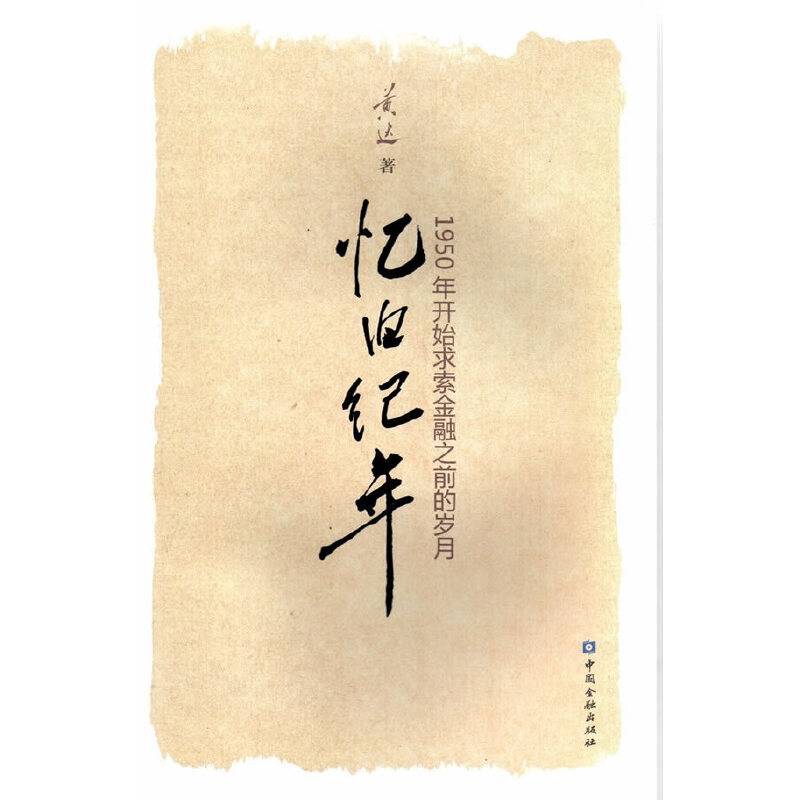 黄达
著
忆旧纪年
1950年开始求索金融之前的岁月
中国金融出版社